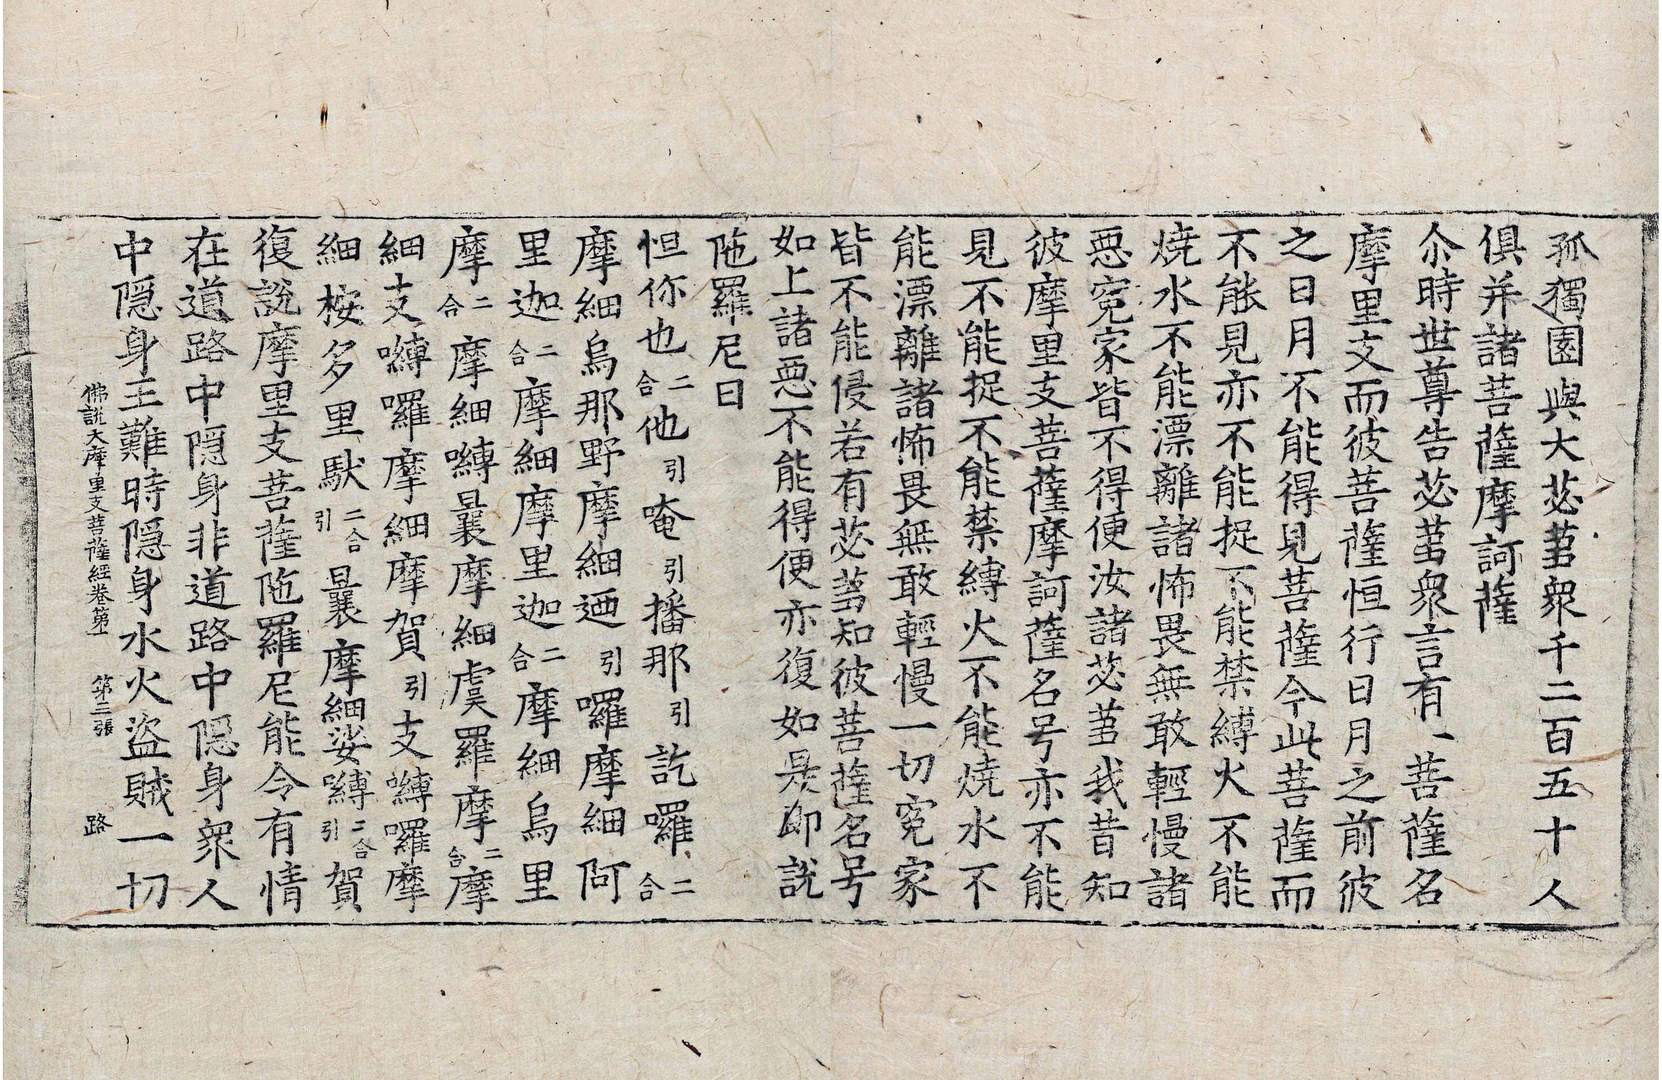 孤獨園與大苾芻衆千二百五十人
俱并諸菩薩摩訶薩
尒時世尊告苾芻衆言有一菩薩名
摩里支而彼菩薩恒行日月之前彼
之日月不能得見菩薩今此菩薩而
不能見亦不能捉不能禁縛火不能
燒水不能漂離諸怖畏無敢輕慢諸
惡冤家皆不得便汝諸苾芻我昔知
彼摩里支菩薩摩訶薩名号亦不能
見不能捉不能禁縛火不能燒水不
能漂離諸怖畏無敢輕慢一切冤家
皆不能侵若有苾芻知彼菩薩名号
如上諸惡不能得便亦復如是卽說
陁羅尼曰
怛你也二合他引唵引播那引訖囉二合
摩細烏那野摩細迺引囉摩細阿
里迦二合摩細摩里迦二合摩細烏里
摩二合摩細嚩曩摩細虞羅摩二合摩
細支嚩囉摩細摩賀引支嚩囉摩
細桉多里馱二合引曩摩細娑嚩二合引賀
復說摩里支菩薩陁羅尼能令有情
在道路中隠身非道路中隠身衆人
中隠身王難時隠身水火盜賊一切
佛說大摩里支菩薩經卷第一 第三張 路